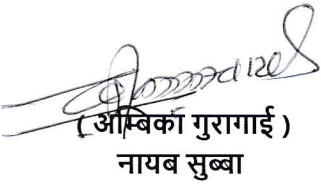 ( अम्बिका गुरागाई )
नायब सुब्बा